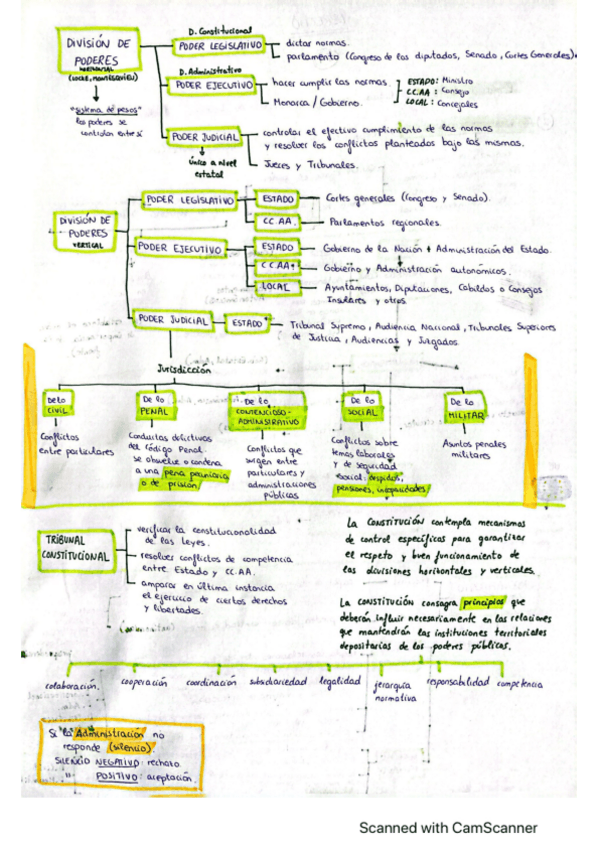 DIVISIÓN DE
PODERES
HORIZONTAL
(LOCKE, MONTESQUIEU)
"sistema de pesos"
los poderes se
controlan entre sí
D. Constitucional
PODER LEGISLATIVO
dictar normas.
parlamento (Congreso de los diputados, Senado, Cortes Generales)
D. Administrativo
PODER EJECUTIVO
hacer cumplir las normas.
Monarca / Gobierno.
ESTADO: Ministro
CC.AA: Consejo
LOCAL: Concejales
PODER JUDICIAL
único a nivel
estatal
controlar el efectivo cumplimiento de las normas
y resolver los conflictos planteados bajo las mismas.
Jueces y Tribunales.
DIVISIÓN DE
PODERES
VERTICAL
PODER LEGISLATIVO
ESTADO
Cortes generales (Congreso y Senado).
CC.AA.
Parlamentos regionales.
PODER EJECUTIVO
ESTADO
Gobierno de la Nación + Administración del Estado.
CC.AA
Gobierno y Administración autonómicos.
LOCAL
Ayuntamientos, Diputaciones, Cabildos o Consejos
Insulares y otros.
PODER JUDICIAL
ESTADO
Tribunal Supremo, Audiencia Nacional, Tribunales Superiores
de Justicia, Audiencias y Juzgados
Jurisdicción
De lo
CIVIL
Conflictos
entre particulares
De lo
PENAL
Conductas delictivas
del Código Penal.
se absuelve o condena
a una pena pecuniaria
o de prisión
De lo
CONTENCIOSO-
ADMINISTRATIVO
Conflictos que
surgen entre
particulares y
administraciones
públicas
De lo
SOCIAL
Conflictos sobre
temas laborales
y de seguridad
social: despidos,
pensiones, incapacidades
De lo
MILITAR
Asuntos penales
militares
TRIBUNAL
CONSTITUCIONAL
verificar la constitucionalidad
de las leyes.
resolver conflictos de competencia
entre Estado y CC.AA.
amparar en última instancia
el ejercicio de ciertos derechos
y libertades.
La CONSTITUCIÓN contempla mecanismos
de control específicos para garantizar
el respeto y buen funcionamiento de
las divisiones horizontales y verticales.
La CONSTITUCIÓN consagra principios que
deberán influir necesariamente en las relaciones
que mantendrán las instituciones territoriales
depositarias de los poderes públicos.
colaboración.
cooperación
coordinación
subsidiariedad
legalidad
jerarquía
normativa
responsabilidad
competencia
Si la Administración no
responde (silencio).
SILENCIO NEGATIVO: rechazo
" POSITIVO: aceptación.
Scanned with CamScanner